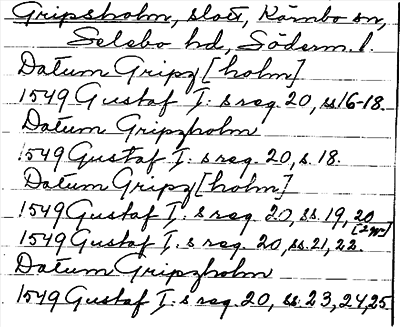 Gripsholm, slott, Kärnbo sn,
Selebo hd, Söderm. l.
Datum Gripz[holm]
1549 Gustaf I: s reg. 20, ss 16-18.
Datum Gripzholm
1549 Gustaf I: s reg. 20, s. 18.
Datum Gripz[holm]
1549 Gustaf I: s reg. 20, ss. 19, 20
[2 ggr]
1549 Gustaf I: s reg. 20, ss. 21, 22.
Datum Gripzholm
1549 Gustaf I: s reg. 20, ss. 23, 24, 25